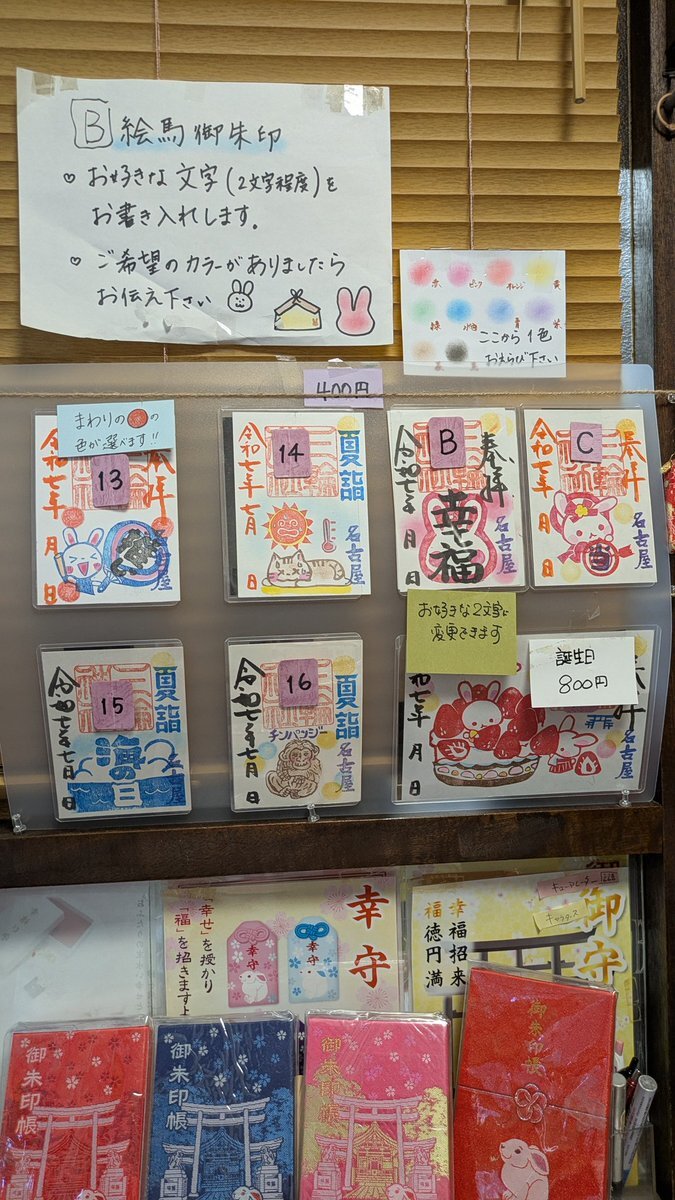 B 絵馬御朱印
♡ お好きな文字(2文字程度)を
お書き入れします。
♡ ご希望のカラーがありましたら
お伝え下さい
赤 ピンク オレンジ 黄
緑 水色 青 紫
ここから1色
おえらび下さい
400円
まわりの の
色が選べます!!
13
奉拝
令和七年 月 日
名古屋
14
夏詣
令和七年七月 日
名古屋
B
奉拝
幸福
令和七年 月 日
名古屋
お好きな2文字に
変更できます
C
奉拝
令和七年 月 日
名古屋
15
夏詣
海の日
令和七年七月 日
名古屋
16
夏詣
チンパンジー
令和七年七月 日
名古屋
誕生日
800円
奉拝
令和七年 月 日
名古屋
幸守
「幸せ」を授かり
「福」を招きますよ
幸守
幸守
御守
幸福招来
福徳円満
御朱印帳
御朱印帳
御朱印帳
御朱印帳